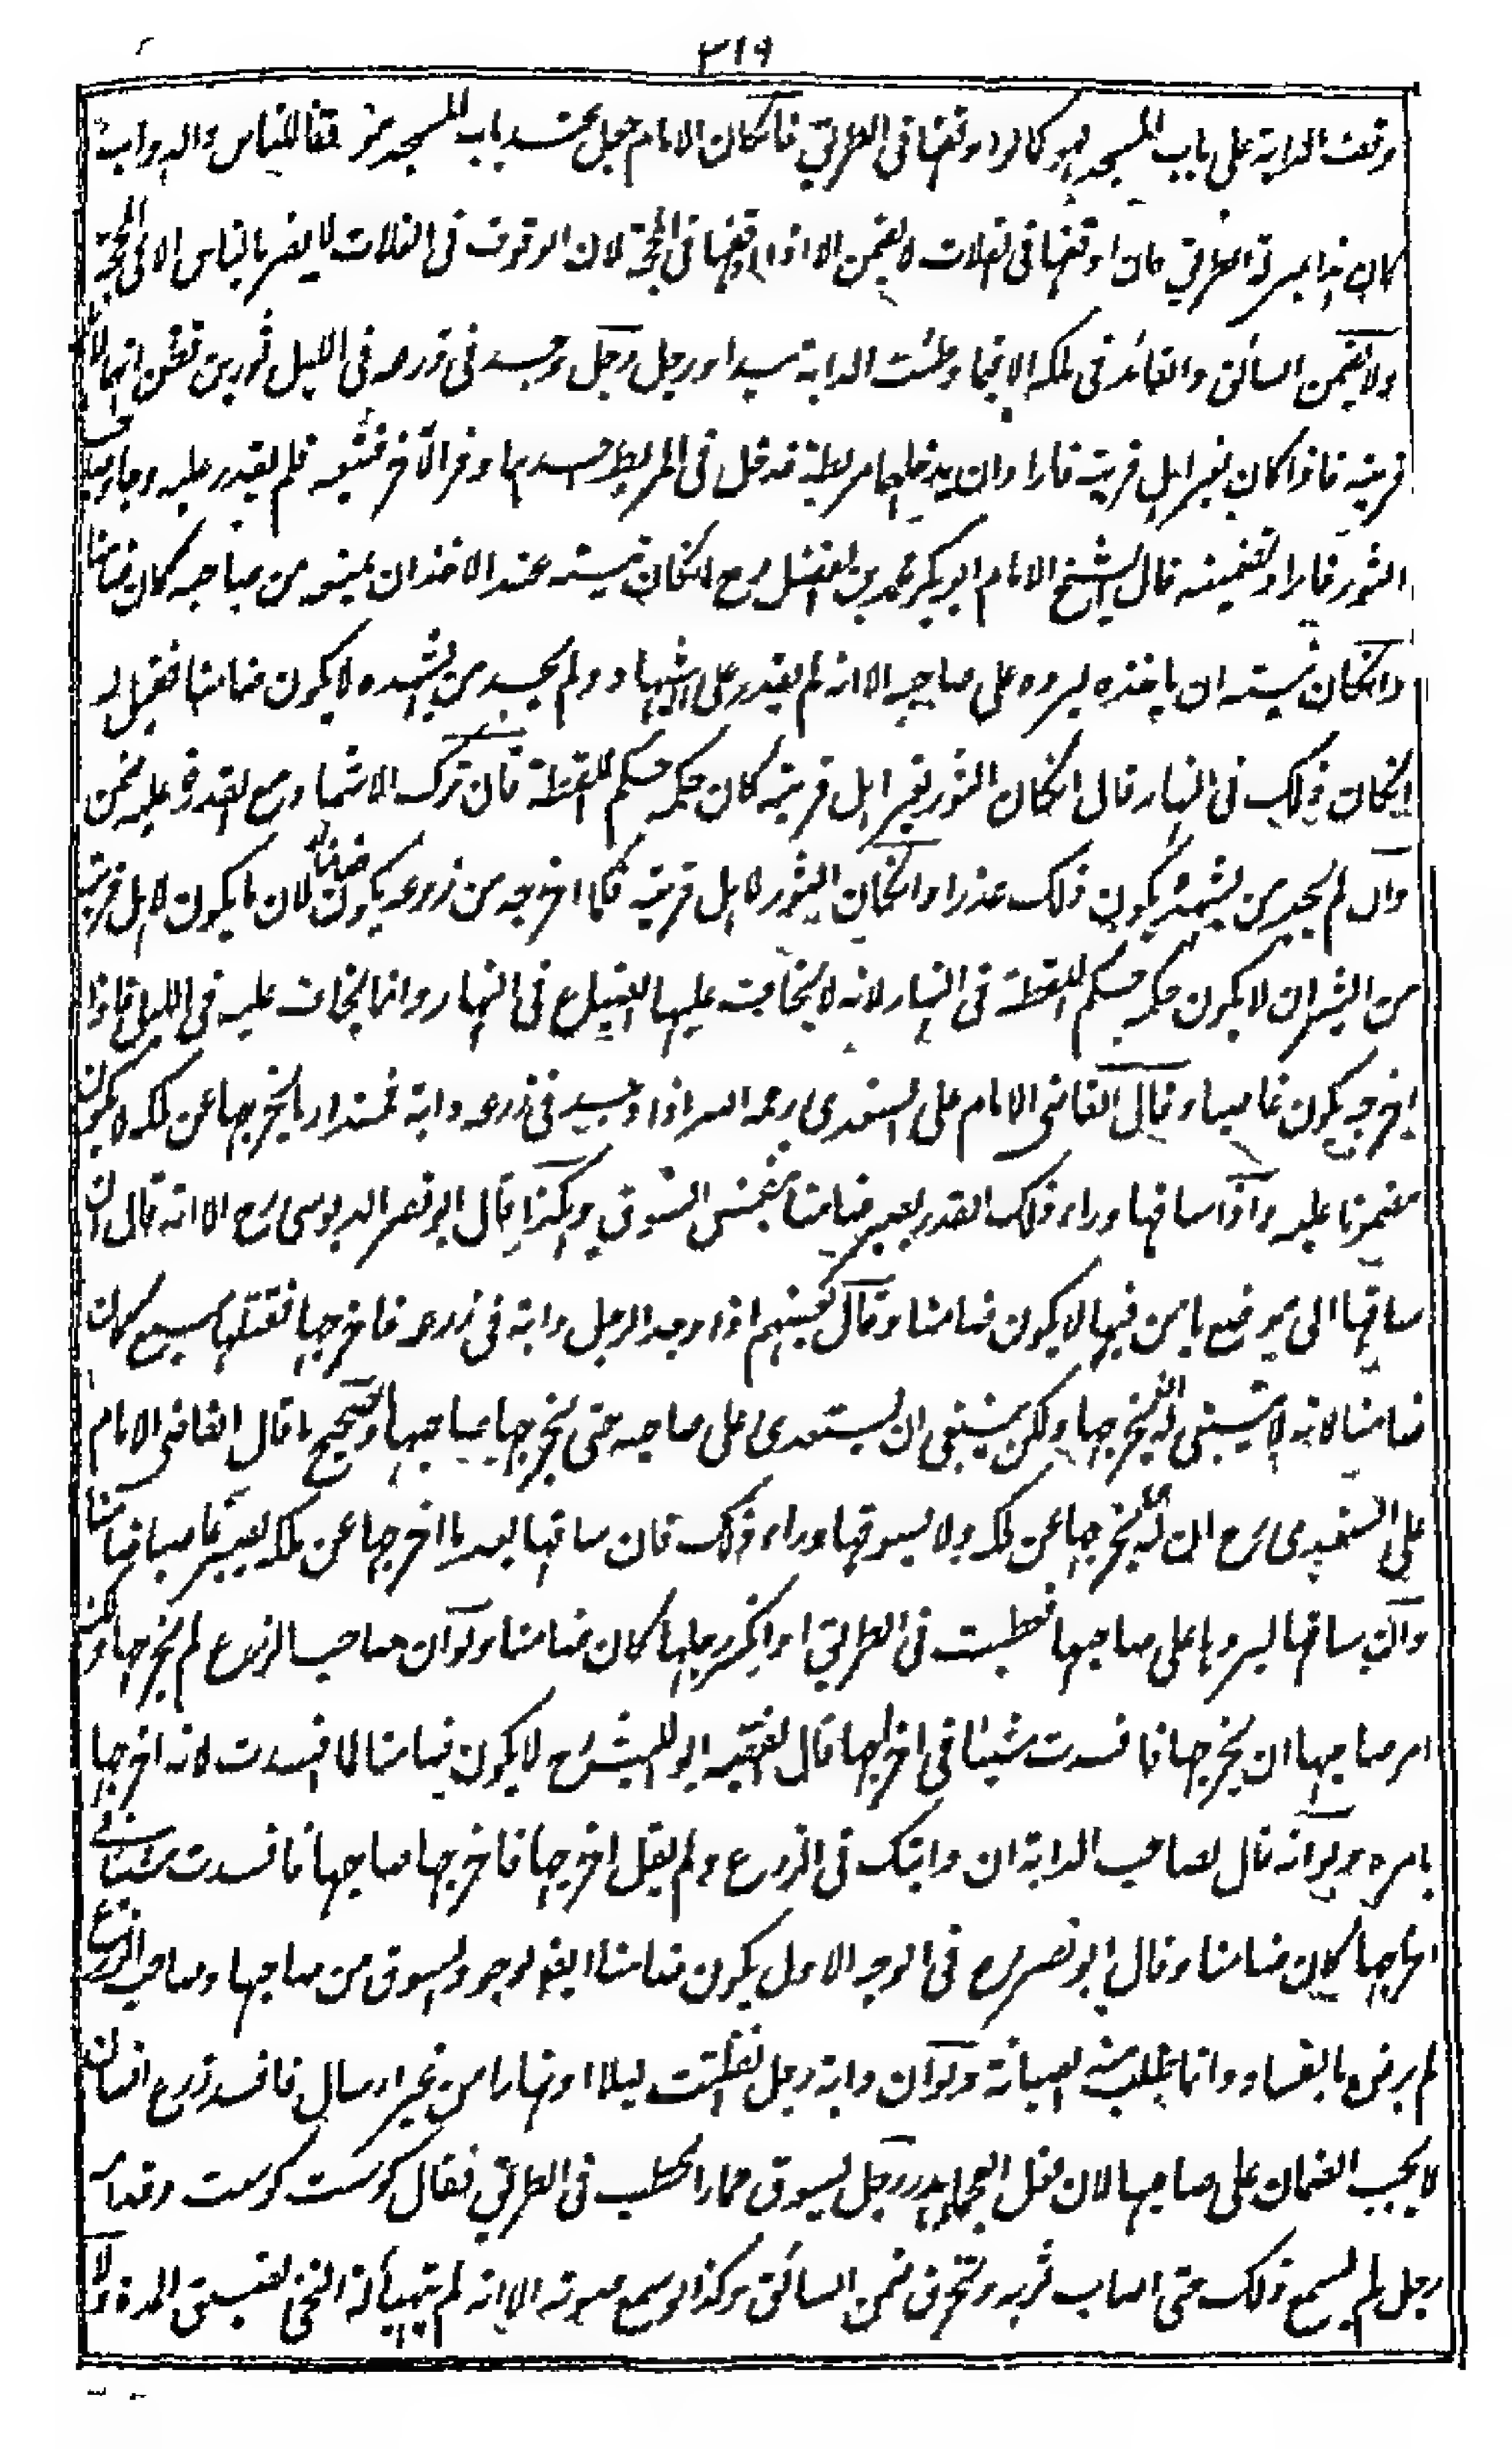 ٣١٩
وقف الدابة على باب المسجد فهو كما لو اوقفها فى الطريق فان كان الامام جعل عند باب المسجد موقفا للناس والدواب
كان هذا بمنزلة الطريق فان اوقفها فى الفلات لا يضمن الا اذا اوقفها فى المحجة لان الوقوف فى الفلات لا يضر بالناس الا فى المحجة
ولا يضمن السائق والقائد فى ملكه الا فيما وطئت الدابة بيد او رجل رجل وجد فى زرعه فى الليل ثورين فظن انهما لاهل
قريته فاذا كان لغير اهل قريته فارادان يدخلهما مربطه فدخل فى المربط احدهما وفر الآخر فتبعه فلم يقدر عليه وجاء صاحب
الثور فاراد تضمينه قال الشيخ الامام ابو بكر محمد بن الفضل رح انكان نيته عند الاخذ ان يمنعه من صاحبه كان ضامنا
وانكان نيته ان ياخذه ليرده على صاحبه الا انه لم يقدر على الاشهاد ولم يجد من يشهده لا يكون ضامنا فقيل له
انكان ذلك فى النهار قال انكان الثور لغير اهل قريته كان حكمه حكم اللقطة فان ترك الاشهاد مع القدرة عليه ضمن
وان لم يجد من يشهد يكون ذلك عذرا وانكان الثور لاهل قريته فكما اخرجه من زرعه يكون ضامنا لان ما يكون لاهل قريته
من الثيران لا يكون حكمه حكم اللقطة فى النهار لانه لا يخاف عليها الضياع فى النهار وانما يخاف عليه فى الليل فاذا
اخرجه يكون غاصبا وقال القاضى الامام على السغدى رحمه الله اذا وجد فى زرعه دابة فمقدار ما يخرجها عن ملكه لا يكون
مضمونا عليه واذا ساقها وراء ذلك القدر يصير ضامنا بنفس السوق وهكذا قال ابو نصر الدبوسى رح الا انه قال ان
ساقها الى موضع يامن فيها لا يكون ضامنا وقال بعضهم اذا وجد الرجل دابة فى زرعه فاخرجها فقتلها سبع كان
ضامنا لانه لا ينبغى له ان يخرجها ولكن ينبغى ان يستعدى على صاحبه حتى يخرجها صاحبها والصحيح ما قال القاضى الامام
على السغدى رح ان له ان يخرجها عن ملكه ولا يسوقها وراء ذلك فان ساقها بعد ما اخرجها عن ملكه يصير غاصبا ضامنا
وان ساقها ليردها على صاحبها فعطبت فى الطريق او انكسر رجلها كان ضامنا ولو ان صاحب الزرع لم يخرجها ولكن
امر صاحبها ان يخرجها فافسدت شيئا فى اخراجها قال الفقيه ابو الليث رح لا يكون ضامنا لما افسدت لانه اخرجها
بامره ولو انه قال لصاحب الدابة ان دابتك فى الزرع ولم يقل اخرجها فاخرجها صاحبها فافسدت شيئا فى
اخراجها كان ضامنا وقال ابو نصر رح فى الوجه الاول يكون ضامنا ايضا لوجود السوق من صاحبها وصاحب الزرع
لم يرض بالفساد وانما يطلب منه الصيانة ولو ان دابة رجل انفلتت ليلا او نهارا من غير ارسال فافسد زرع انسان
لا يجب الضمان على صاحبها لان فعل العجماء هدر رجل يسوق حمارا لحطب فى الطريق فقال كوست كوست وقدامه
رجل لم يسمع ذلك حتى اصاب ثوبه وتخرق ضمن السائق وكذا لو سمع صوته الا انه لم يتهيأ له التنحى لضيق المدة ولا